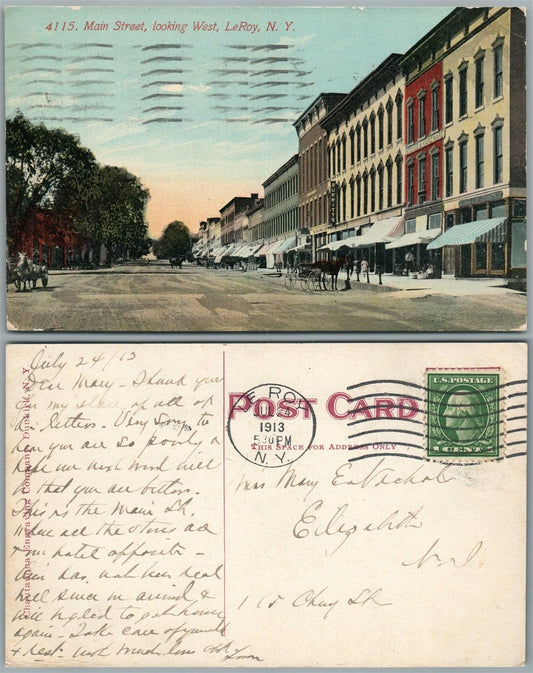 4115. Main Street, looking West, LeRoy, N. Y.
July 24/13
Dear Mary - Thank you
for my share of all of
letters. Very sorry to
hear you are so poorly &
hear next week will
that you are better.
This is the Main St.
Where all the stores are
& our hotel opposite -
has not been real
well since we arrived &
will be glad to get home
again - Take care of yourself
& rest - with much love
Chautauqua Engraving Company, Dunkirk, N. Y.
POST CARD
THIS SPACE FOR ADDRESS ONLY
LE ROY
JUL
1913
5:30 PM
N. Y.
U.S. POSTAGE
1 CENT 1
Mrs Mary E. Nichols
Elizabeth
N. J.
115 Cherry St